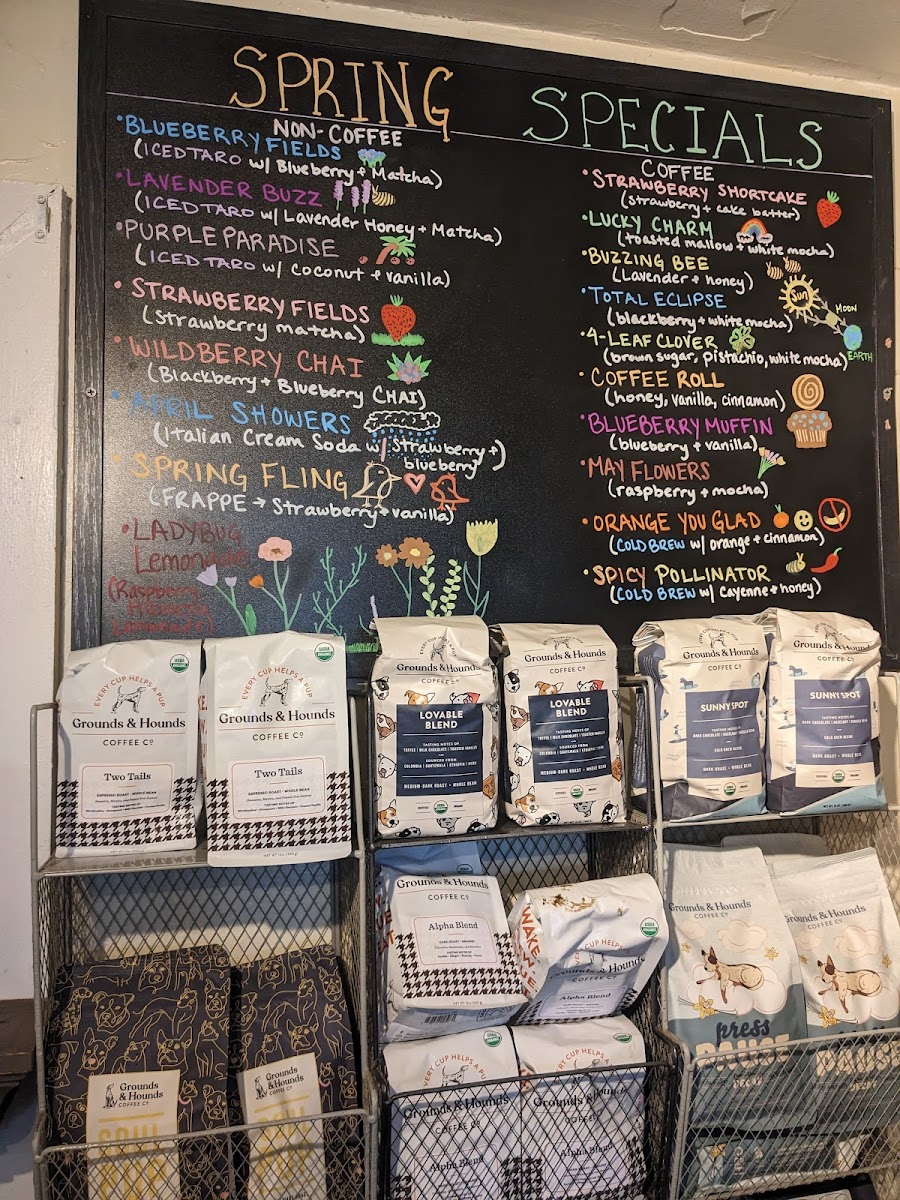 SPRING SPECIALS
NON-COFFEE
•BLUEBERRY FIELDS
(ICED TARO w/ Blueberry + Matcha)
•LAVENDER BUZZ
(ICED TARO w/ Lavender Honey + Matcha)
•PURPLE PARADISE
(ICED TARO w/ Coconut + vanilla)
•STRAWBERRY FIELDS
(strawberry matcha)
•WILDBERRY CHAI
(Blackberry + Blueberry CHAI)
•APRIL SHOWERS
(Italian Cream Soda w/ strawberry +
blueberry)
•SPRING FLING
(FRAPPE → Strawberry + vanilla)
•LADYBUG
Lemonade
(Raspberry
Lemonade)
COFFEE
•STRAWBERRY SHORTCAKE
(strawberry + cake batter)
•LUCKY CHARM
(toasted mallow + white mocha)
•BUZZING BEE
(Lavender + honey)
Sun
MOON
EARTH
•TOTAL ECLIPSE
(blackberry + white mocha)
•4-LEAF CLOVER
(brown sugar, pistachio, white mocha)
•COFFEE ROLL
(honey, vanilla, cinnamon)
•BLUEBERRY MUFFIN
(blueberry + vanilla)
•MAY FLOWERS
(raspberry + mocha)
•ORANGE YOU GLAD
(COLD BREW w/ orange + cinnamon)
•SPICY POLLINATOR
(COLD BREW w/ Cayenne + honey)
EVERY CUP HELPS A PUP
Grounds & Hounds
COFFEE CO
Two Tails
ESPRESSO ROAST • WHOLE BEAN
EVERY CUP HELPS A PUP
Grounds & Hounds
COFFEE CO
Two Tails
ESPRESSO ROAST • WHOLE BEAN
Grounds & Hounds
COFFEE CO
LOVABLE
BLEND
TASTING NOTES OF
TOFFEE | MILK CHOCOLATE | TOASTED VANILLA
SOURCED FROM
COLOMBIA | GUATEMALA | ETHIOPIA | PERU
MEDIUM-DARK ROAST • WHOLE BEAN
Grounds & Hounds
COFFEE CO
LOVABLE
BLEND
TASTING NOTES OF
MEDIUM-DARK ROAST • WHOLE BEAN
Grounds & Hounds
COFFEE CO
SUNNY SPOT
TASTING NOTES OF
COLD BREW BLEND
DARK ROAST • WHOLE BEAN
Grounds & Hounds
COFFEE CO
SUNNY SPOT
TASTING NOTES OF
COLD BREW BLEND
DARK ROAST • WHOLE BEAN
Grounds & Hounds
COFFEE CO
Alpha Blend
EVERY CUP HELPS
Grounds & Hounds
COFFEE CO
Alpha Blend
Grounds & Hounds
COFFEE CO
press
PAUSE
Grounds & Hounds
COFFEE CO
Grounds
& Hounds
COFFEE CO
Grounds
& Hounds
COFFEE CO
EVERY CUP HELPS A PUP
Grounds & Hounds
COFFEE CO
Alpha Blend
EVERY CUP HELPS A PUP
Grounds & Hounds
COFFEE CO
Alpha Blend